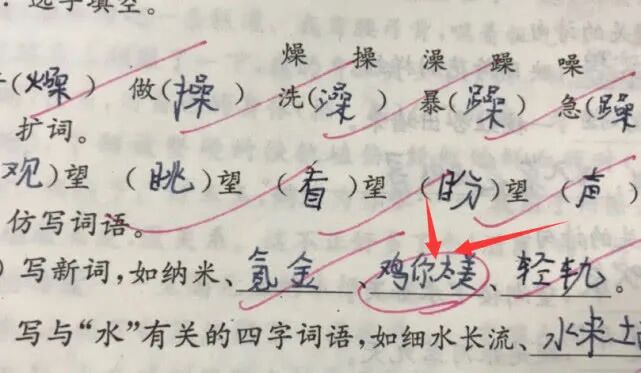 选字填空。
燥 操 澡 躁 噪
(燥) 做(操) 洗(澡) 暴(躁) 急(躁
扩词。
观)望 (眺)望 (看)望 (盼)望 (声
仿写词语。
)写新词，如纳米、氪金、鸡你太美、轻轨。
写与“水”有关的四字词语，如细水长流、水来土